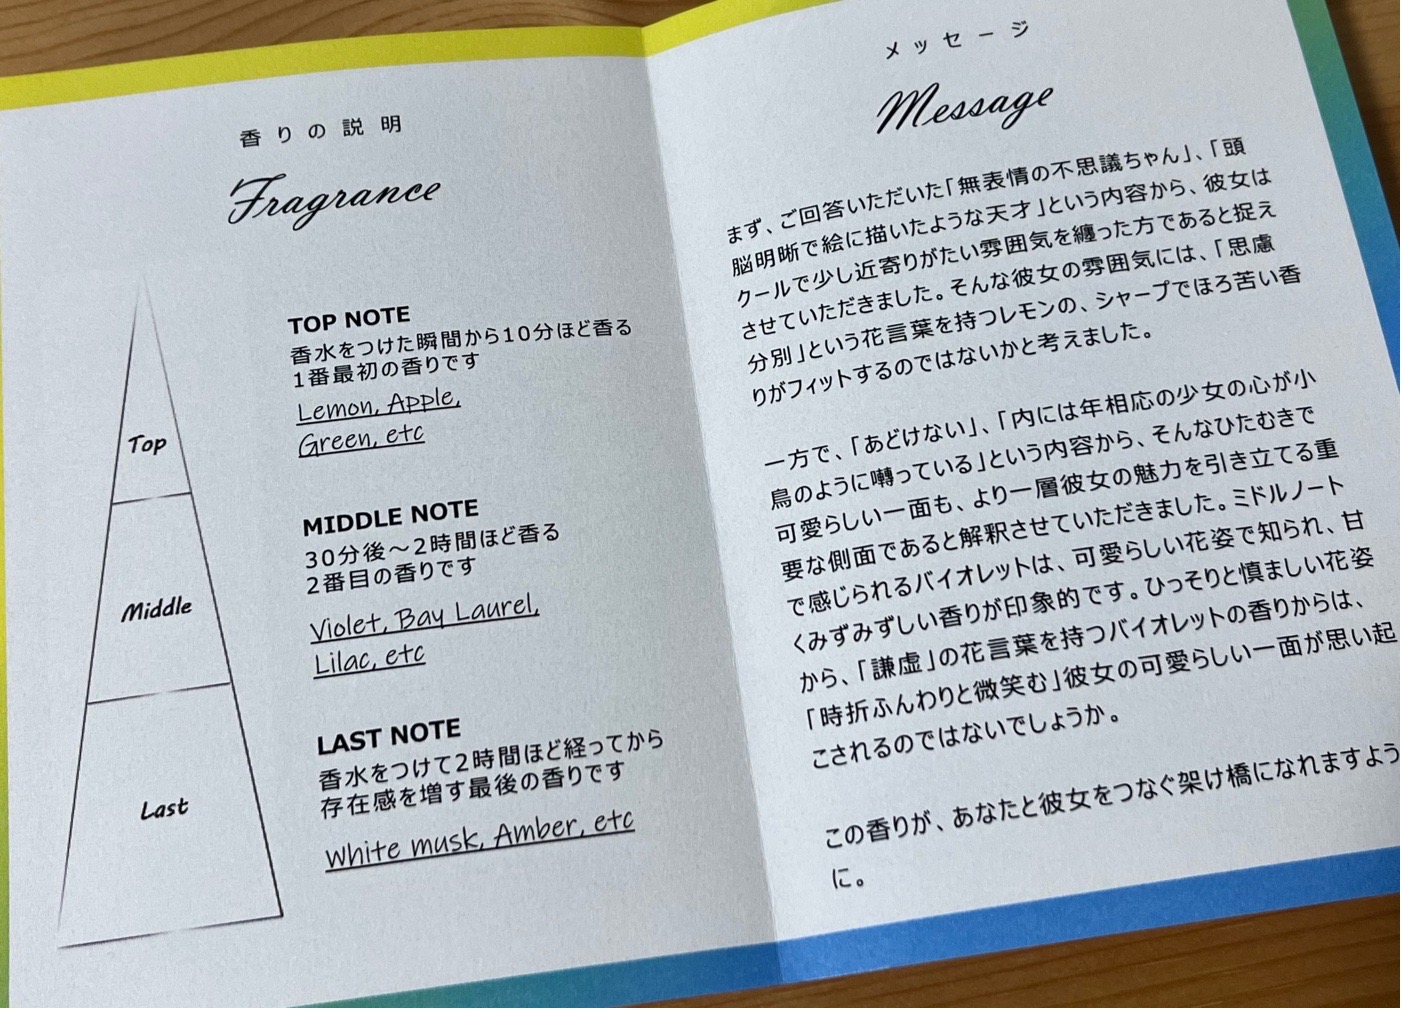 香りの説明
Fragrance
TOP NOTE
香水をつけた瞬間から10分ほど香る
1番最初の香りです
Lemon, Apple,
Green, etc
MIDDLE NOTE
30分後～2時間ほど香る
2番目の香りです
Violet, Bay Laurel,
Lilac, etc
LAST NOTE
香水をつけて2時間ほど経ってから
存在感を増す最後の香りです
White musk, Amber, etc
Top
Middle
Last
メッセージ
Message
まず、ご回答いただいた「無表情の不思議ちゃん」、「頭
脳明晰で絵に描いたような天才」という内容から、彼女は
クールで少し近寄りがたい雰囲気を纏った方であると捉え
させていただきました。そんな彼女の雰囲気には、「思慮
分別」という花言葉を持つレモンの、シャープでほろ苦い香
りがフィットするのではないかと考えました。
一方で、「あどけない」、「内には年相応の少女の心が小
鳥のように囀っている」という内容から、そんなひたむきで
可愛らしい一面も、より一層彼女の魅力を引き立てる重
要な側面であると解釈させていただきました。ミドルノート
で感じられるバイオレットは、可愛らしい花姿で知られ、甘
くみずみずしい香りが印象的です。ひっそりと慎ましい花姿
から、「謙虚」の花言葉を持つバイオレットの香りからは、
「時折ふんわりと微笑む」彼女の可愛らしい一面が思い起
こされるのではないでしょうか。
この香りが、あなたと彼女をつなぐ架け橋になれますよう
に。